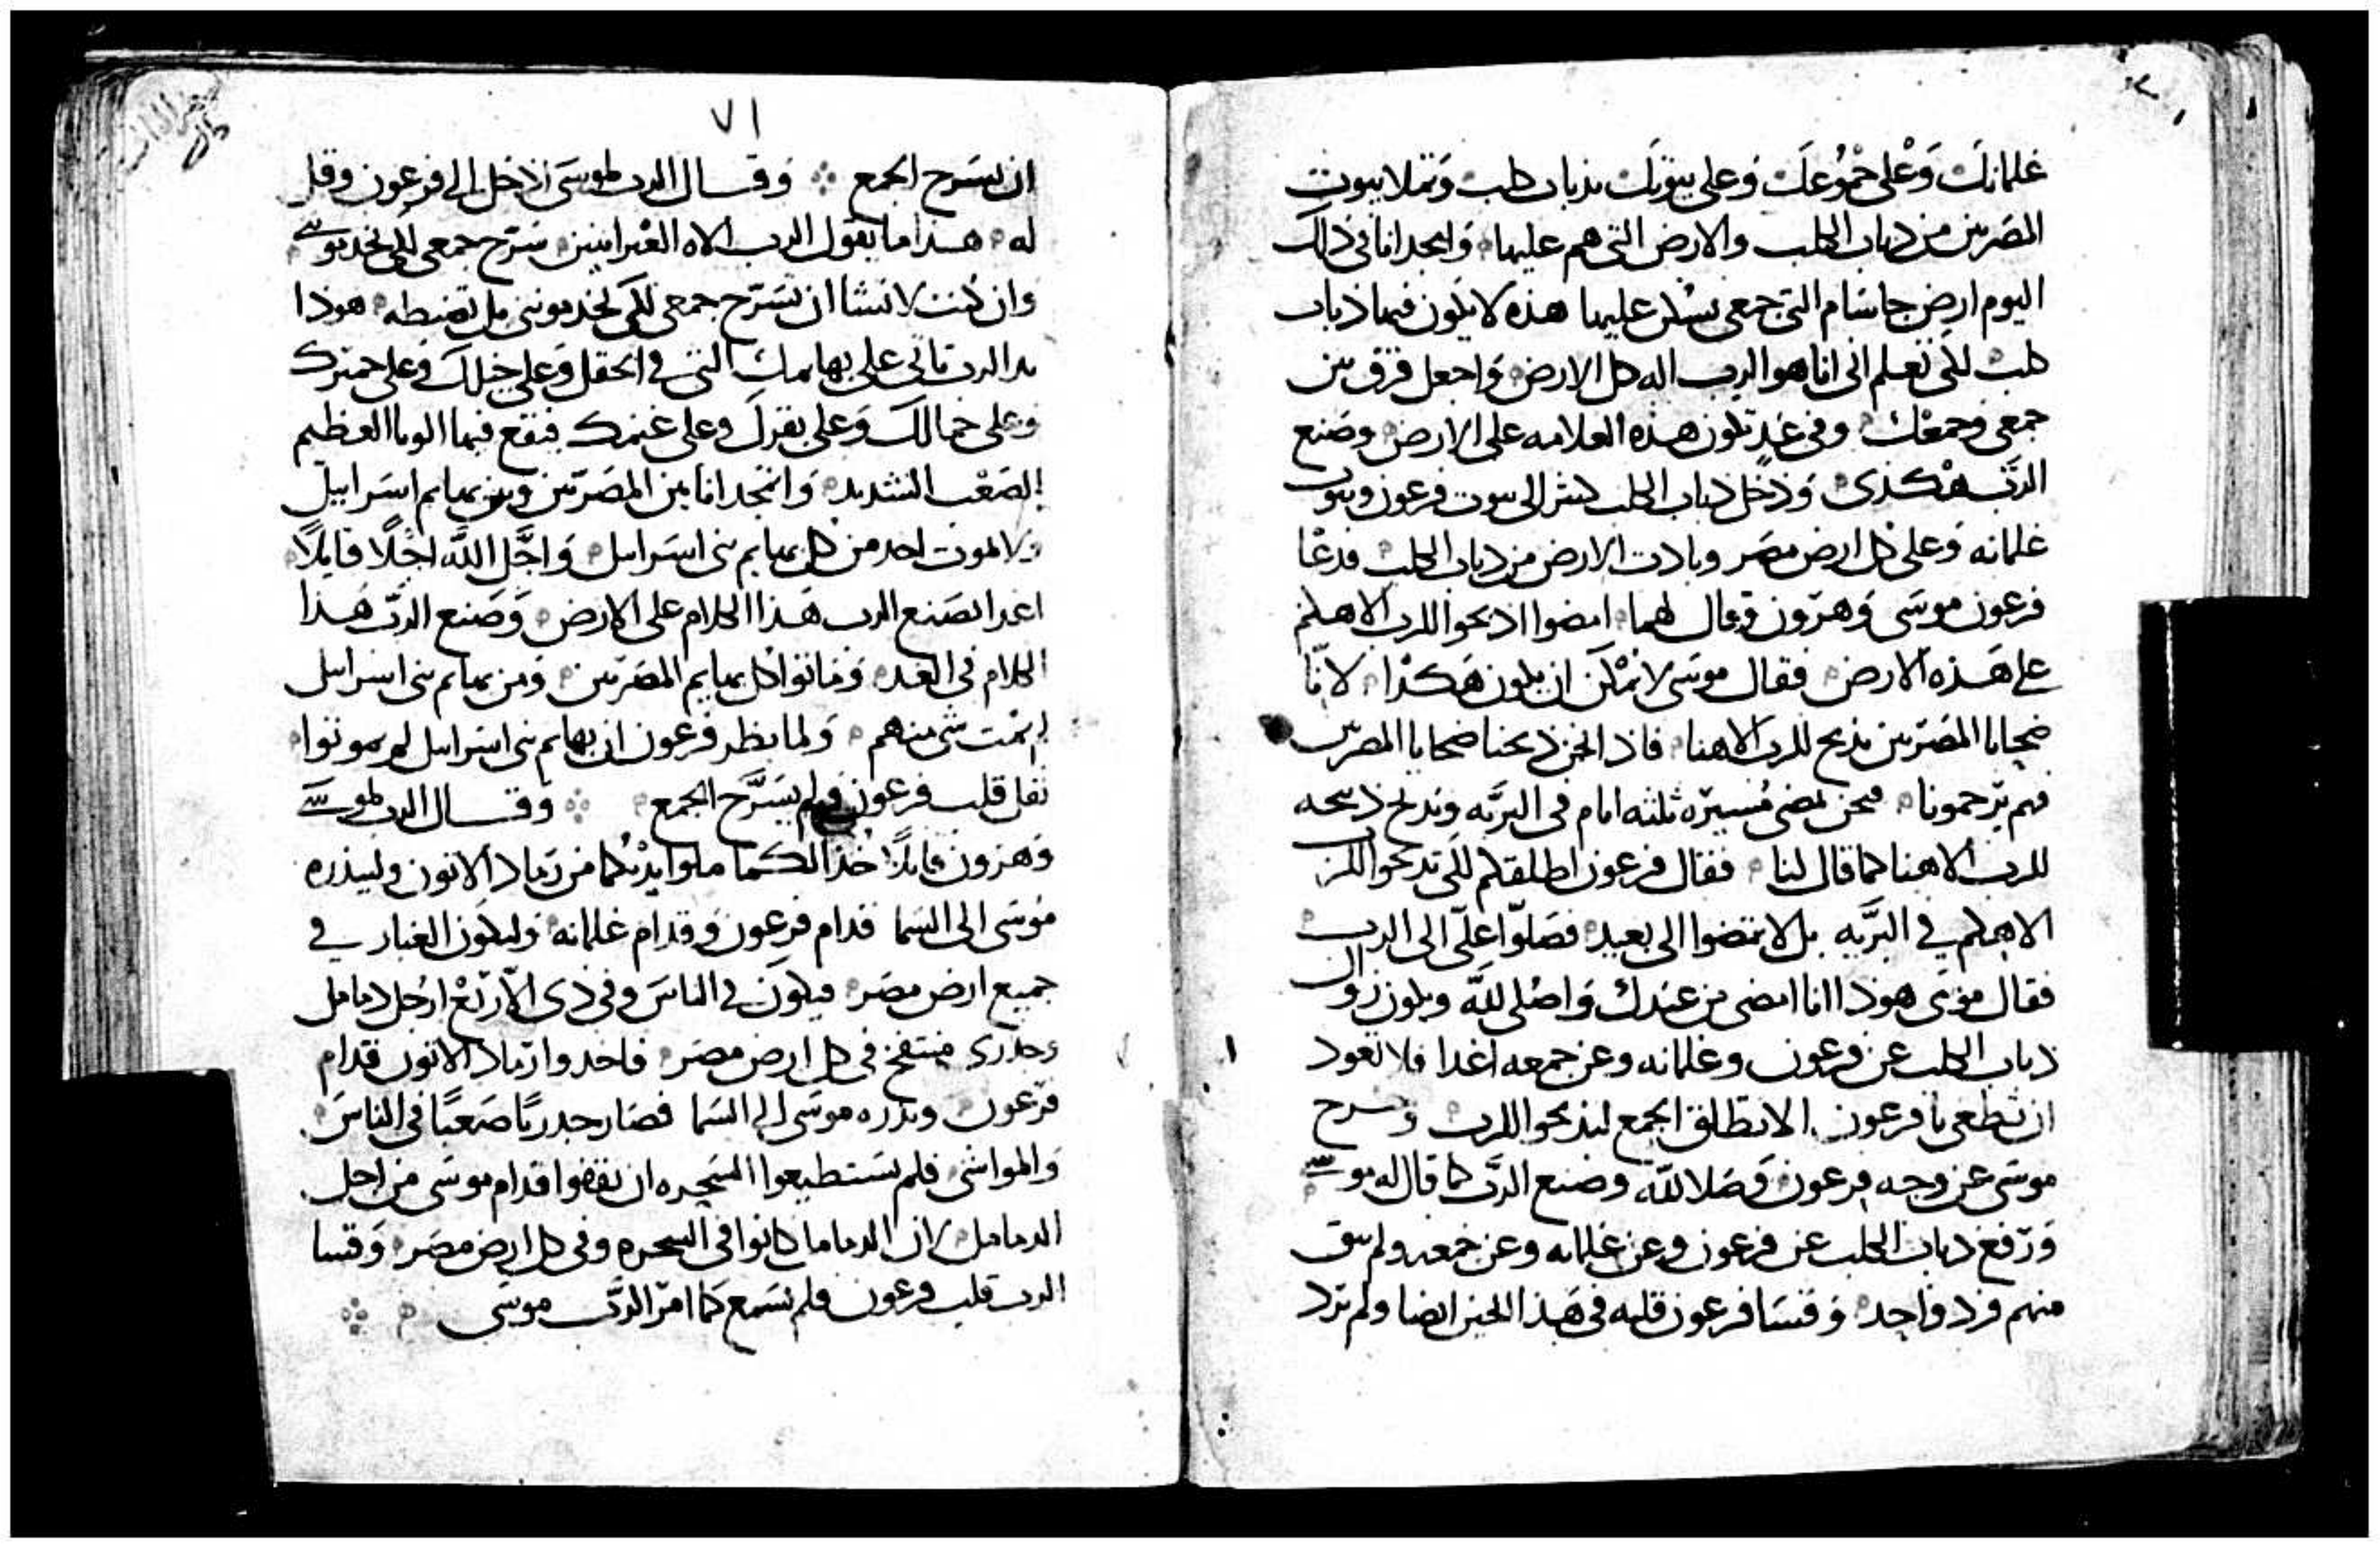 غلمانك وعلى جموعك وعلى بيوتك بذباب كلب وتملا بيوت
المصريين من ذباب الكلب والارض التي هم عليها وامجد انا في ذلك
اليوم ارض جاسام التي جمعي يسكن عليها هذه لا يكون فيها ذباب
كلب لكي تعلم اني انا هو الرب اله كل الارض واجعل فرق بين
جمعي وجمعك وفي غد تكون هذه العلامه على الارض وصنع
الرب هكذى ودخل ذباب الكلب كثير الى بيوت فرعون وبيوت
غلمانه وعلى كل ارض مصر وبادت الارض من ذباب الكلب فدعا
فرعون موسى وهرون وقال لهما امضوا اذبحوا للرب الاهكم
على هذه الارض فقال موسى لا يمكن ان يكون هكذا لانا
ضحايا المصريين نذبح للرب الاهنا فاذا نحن ذبحنا ضحايا المصريين
فهم يرجمونا فنحن نمضي مسيرة ثلثه ايام في البريه ونذبح ذبيحه
للرب الاهنا كما قال لنا فقال فرعون اطلقكم لكي تذبحوا للرب
الاهكم في البريه بل لا تمضوا الى بعيد فصلوا علي الى الرب
فقال موسى هوذا انا امضي من عندك واصلي لله ويكون زوال
ذباب الكلب عن فرعون وغلمانه وعن جمعه غدا فلا تعود
ان تطغى يا فرعون الا تطلق الجمع ليذبحوا للرب وخرج
موسى عن وجه فرعون وصلا لله وصنع الرب كما قال له موسى
ورفع ذباب الكلب عن فرعون وعن غلمانه وعن جمعه ولم يبق
منهم فرد واحد وقسا فرعون قلبه في هذا الحين ايضا ولم يرد
٧١
ان يسرح الجمع وقال الرب لموسى ادخل الى فرعون وقل
له هذا ما يقول الرب الاه العبرانيين سرح جمعي لكي يخدموني
وان كنت لا تشا ان تسرح جمعي لكي يخدمونني بل تضبطه هوذا
يد الرب تاتي على بهايمك التي في الحقل وعلى خيلك وعلى حميرك
وعلى جمالك وعلى بقرك وعلى غنمك فيقع فيها الوبا العظيم
الصعب الشديد وامجد انا بين المصريين وبين بهايم اسراييل
ولا يموت احد من كل بهايم بني اسراييل واجل الله اجلا قايلا
غدا يصنع الرب هذا الكلام على الارض وصنع الرب هذا
الكلام في الغد وماتوا كل بهايم المصريين ومن بهايم بني اسراييل
لم يمت شي منهم ولما نظر فرعون ان بهايم بني اسراييل لم يموتوا
ثقل قلب فرعون ولم يسرح الجمع وقال الرب لموسى
وهرون قايلا خذا لكما ملو ايديكما من رماد الاتون وليذره
موسى الى السما قدام فرعون وقدام غلمانه وليكون الغبار في
جميع ارض مصر فيكون في الناس وفي ذي الاربع ارجل دمامل
وجدري منتفخ في كل ارض مصر فاخذوا رماد الاتون قدام
فرعون وبذره موسى الى السما فصار جدريا صعبا في الناس
والمواشي فلم يستطيعوا السحره ان يقفوا قدام موسى من اجل
الدمامل لان الدمامل كانوا في السحره وفي كل ارض مصر وقسا
الرب قلب فرعون فلم يسمع كما امر الرب موسى